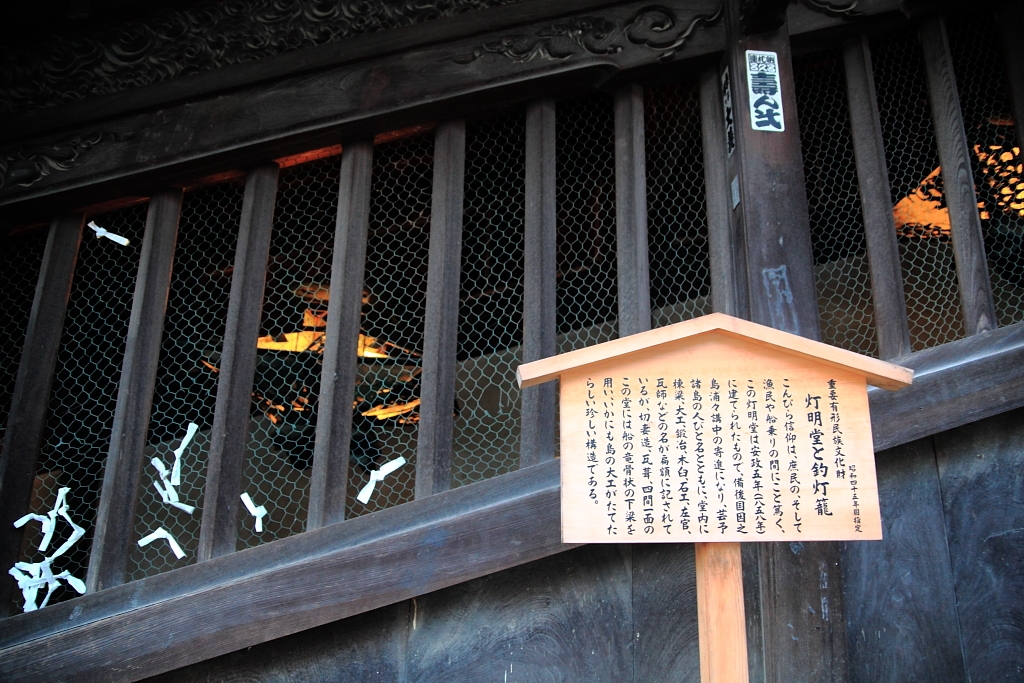 重要有形民族文化財
昭和四十五年国指定
灯明堂と釣灯籠
こんぴら信仰は、庶民の、そして
漁民や船乗りの間にこと篤く、
この灯明堂は安政五年(一八五八年)
に建てられたもので、備後国因之
島浦々講中の寄進になり、芸予
諸島の人びと名とともに、堂内に
棟梁、大工、鍛冶、木臼、石工、左官、
瓦師などの名が扁額に記されて
いるが、切妻造、瓦葺、四間一面の
この堂には船の竜骨状の下梁を
用い、いかにも島の大工がたてた
らしい珍しい構造である。
壽ん弌